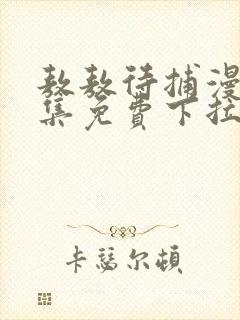 敖敖待捕漫
集免費下拉
卡瑟尔頓